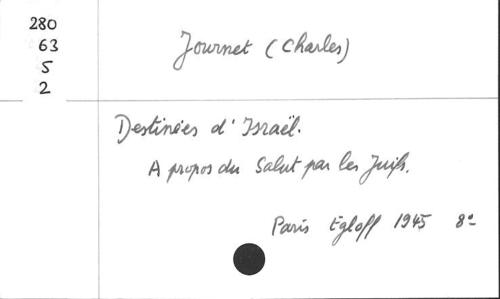 280
63
5
2
Journet (Charles)
Destinées d'Israël.
A propos du Salut par les Juifs.
Paris Egloff 1945 8°